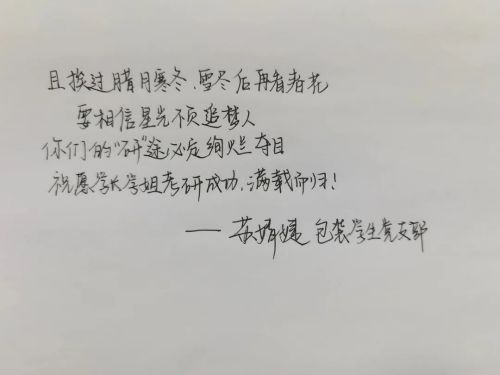 且挨过腊月寒冬,雪冬后再看春花
要相信星光不负追梦人
你们的"研"途必定绚烂夺目
祝愿学长学姐考研成功,满载而归!
—— 苏 包装学生党支部